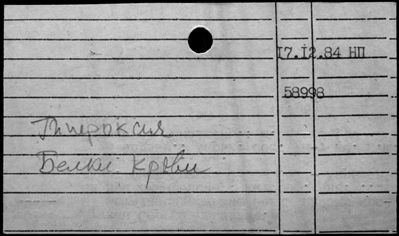 17.12.84 НП
58998
Гипероксия
Белки крови